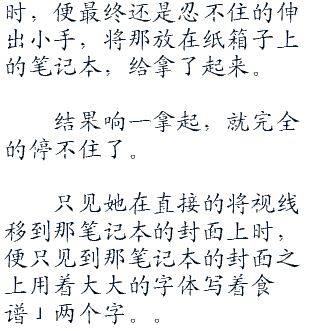 时，便最终还是忍不住的伸
出小手，将那放在纸箱子上
的笔记本，给拿了起来。
结果响一拿起，就完全
的停不住了。
只见她在直接的将视线
移到那笔记本的封面上时，
便只见到那笔记本的封面之
上用着大大的字体写着食
谱」两个字。。